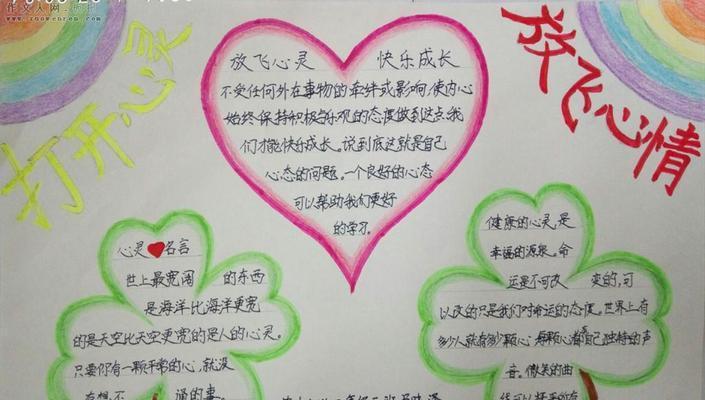 作文人网
打开心灵
放飞心情
放飞心灵 快乐成长
不受任何外在事物的牵绊或影响,使内心
始终保持积极与乐观的态度做到这点,我
们才能快乐成长。说到底这就是自己
心态的问题。一个良好的心态
可以帮助我们更好
的学习。
心灵名言
世上最宽阔 的东西
是海洋比海洋更宽
的是天空比天空更宽的是人的心灵。
只要你有一颗平常的心,就没
有想不 通的事。
健康的心灵,是
幸福的源泉。命
运是不可改 变的,可
以改的只是我们对命运的态度。世界上有
多少人就有多少颗心 每颗心都有自己独特的声
音。微笑的曲